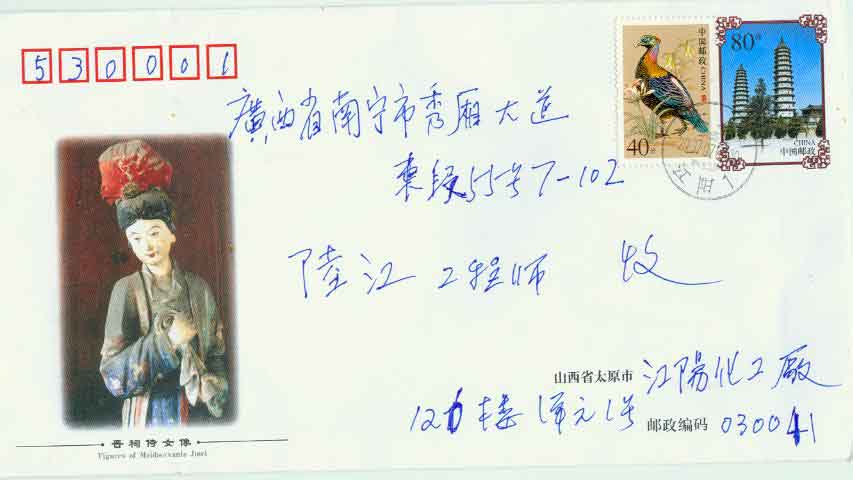 530001
廣西省南宁市秀厢大道
東段55号7-102
陸江 工程师 收
中国邮政
CHINA
40分
80分
CHINA
中国邮政
山西省太原市 江陽化工廠
121楼 单元1号 邮政编码 030041
晋祠侍女像
Figures of Maidservants Jinci